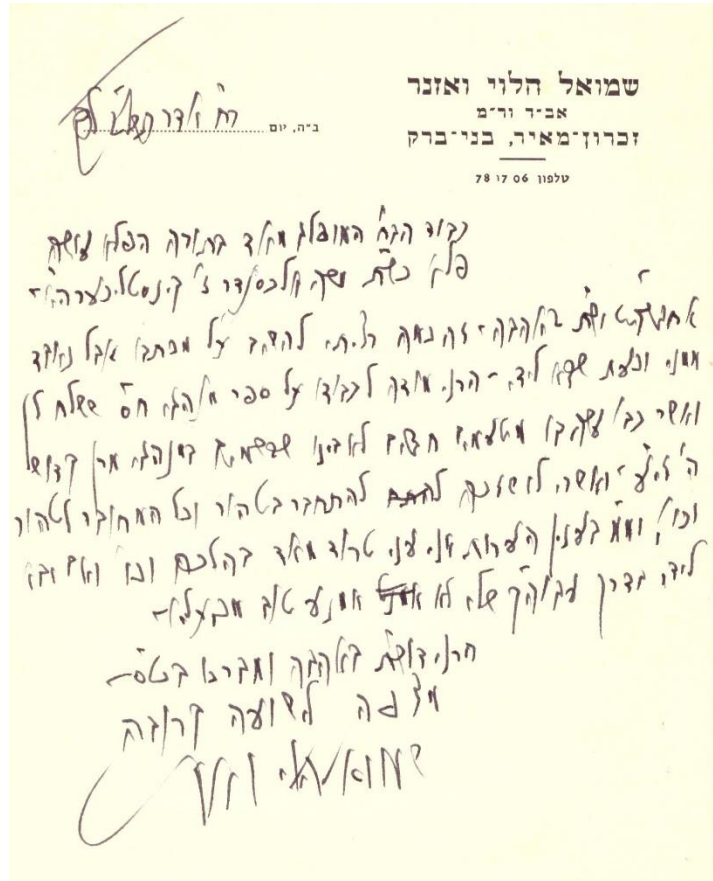 שמואל הלוי ואזנר
אב״ד ור״מ
זכרון־מאיר, בני־ברק
טלפון 06 17 78
ב״ה, יום ר״ח אדר
כבוד הבה״ח המופלג מאד בתורה הפלא ועושה
פלא כש״ת משה אלכסנדר ז׳
אחדשה״ט וש״ת באהבה־ זה כמה רציתי להשיב על מכתבו אבל נאבד
ממני וכעת שבא לידי־ הרני מודה לכבודו על ספר מנהגי חת״ס ששלח לי
ואשר כבו׳ עשה בו מטעמים חדשים לאבינו שבשמים במנהגי מרן קדוש
ה׳ זי״ע־ ואשרי לו שזכה להתחבר בטהור וכל המחובר לטהור
וכו׳, וממ״ש בענין הערות אני עני טרוד מאד בהלכה וכו׳ ואם יבא
לידי בדרך לא אמנע טוב מבעליו־
הרני דוש״ת באהבה ומברכו בכט״ס־
מצפה לישועה קרובה
שמואל הלוי ואזנר